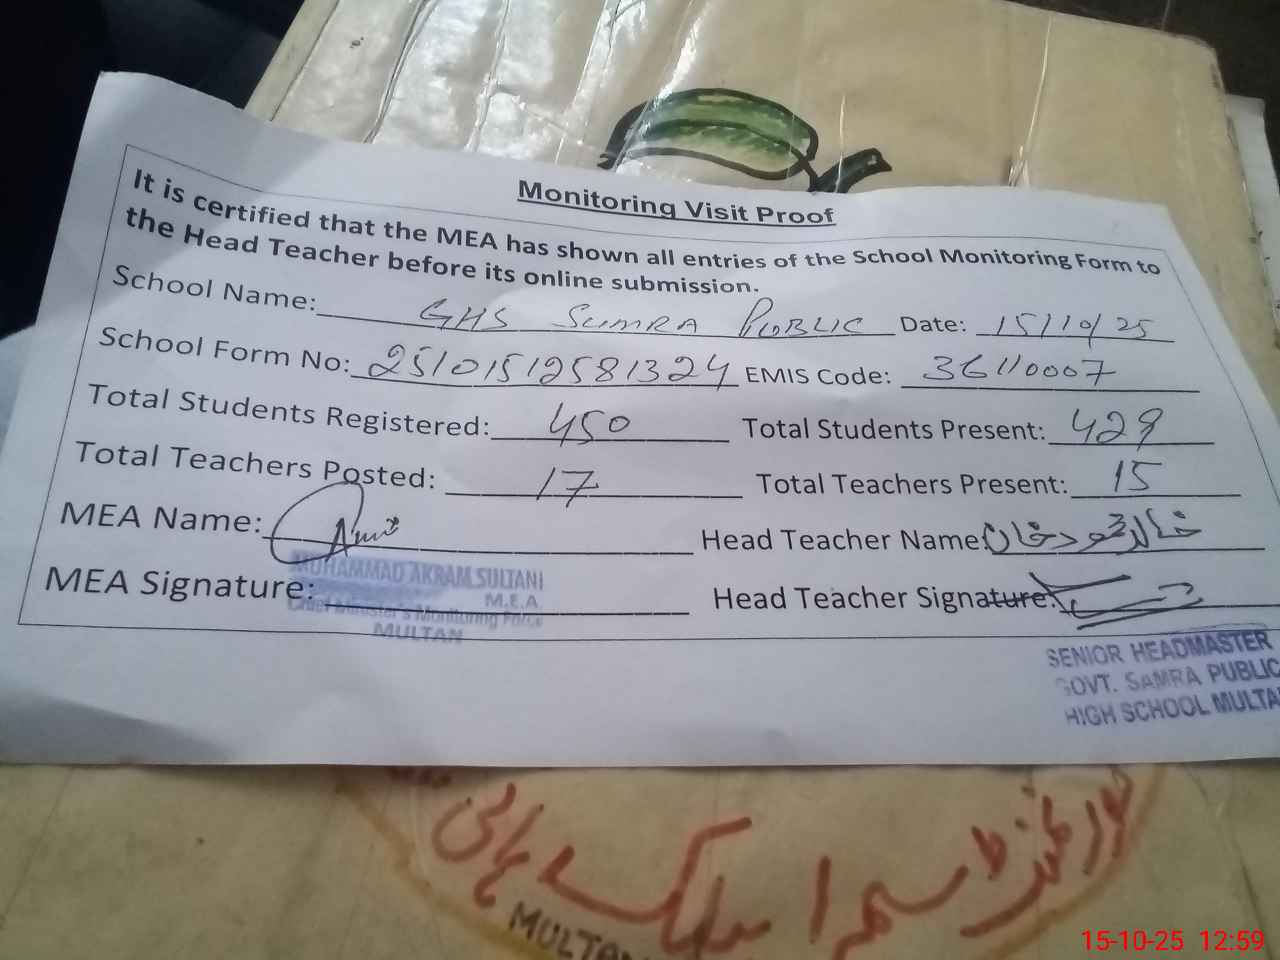 Monitoring Visit Proof
It is certified that the MEA has shown all entries of the School Monitoring Form to
the Head Teacher before its online submission.
School Name: GHS SUMRA PUBLIC Date: 15/10/25
School Form No: 25101512581324 EMIS Code: 36110007
Total Students Registered: 450 Total Students Present: 429
Total Teachers Posted: 17 Total Teachers Present: 15
MEA Name: Head Teacher Name: خالد محمود خان
MUHAMMAD AKRAM SULTANI
M.E.A
MEA Signature: Head Teacher Signature:
Chief Minister's Monitoring Force
MULTAN
SENIOR HEADMASTER
GOVT. SAMRA PUBLIC
HIGH SCHOOL MULTA
گورنمنٹ سمرا پبلک ہائی
MULTAN
15-10-25 12:59